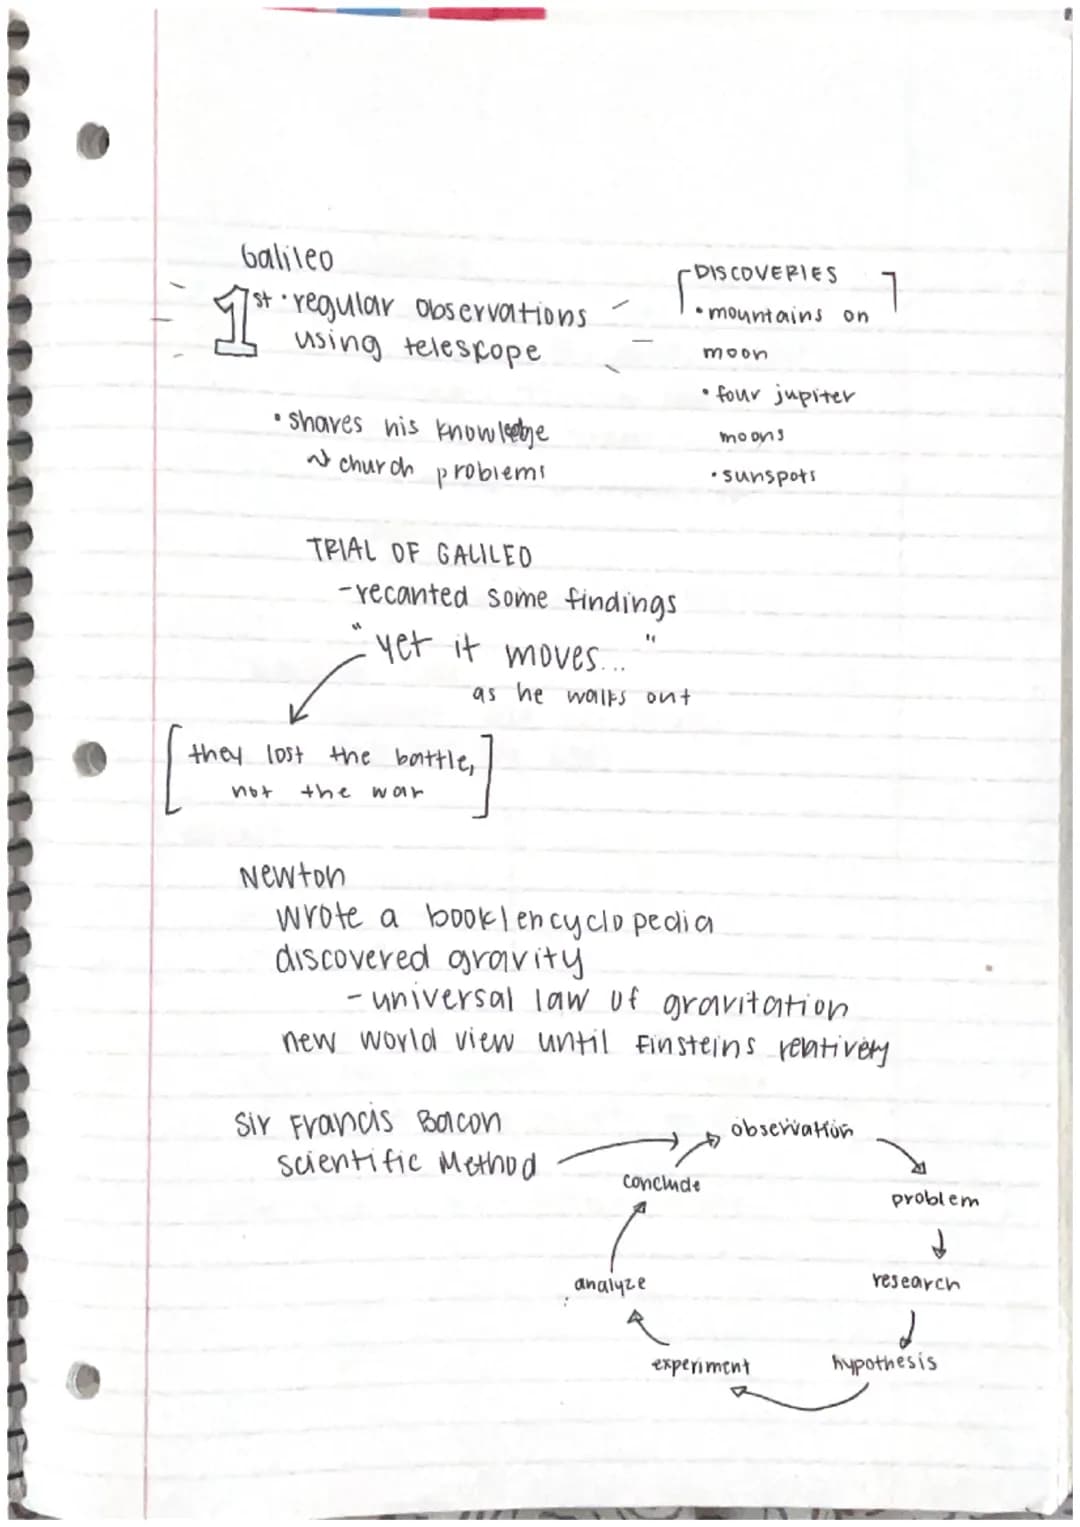 Galileo
1st • regular observations
using telescope
• shares his knowledge
church problems
DISCOVERIES
• mountains on
moon
• four jupiter
moons
• sunspots
TRIAL OF GALILEO
- recanted some findings
"yet it moves..."
as he walks out
[they lost the battle,
not the war]
Newton
wrote a book/encyclopedia
discovered gravity
- universal law of gravitation
new world view until Einsteins relativety
Sir Francis Bacon
scientific Method
observation
problem
research
hypothesis
experiment
analyze
conclude